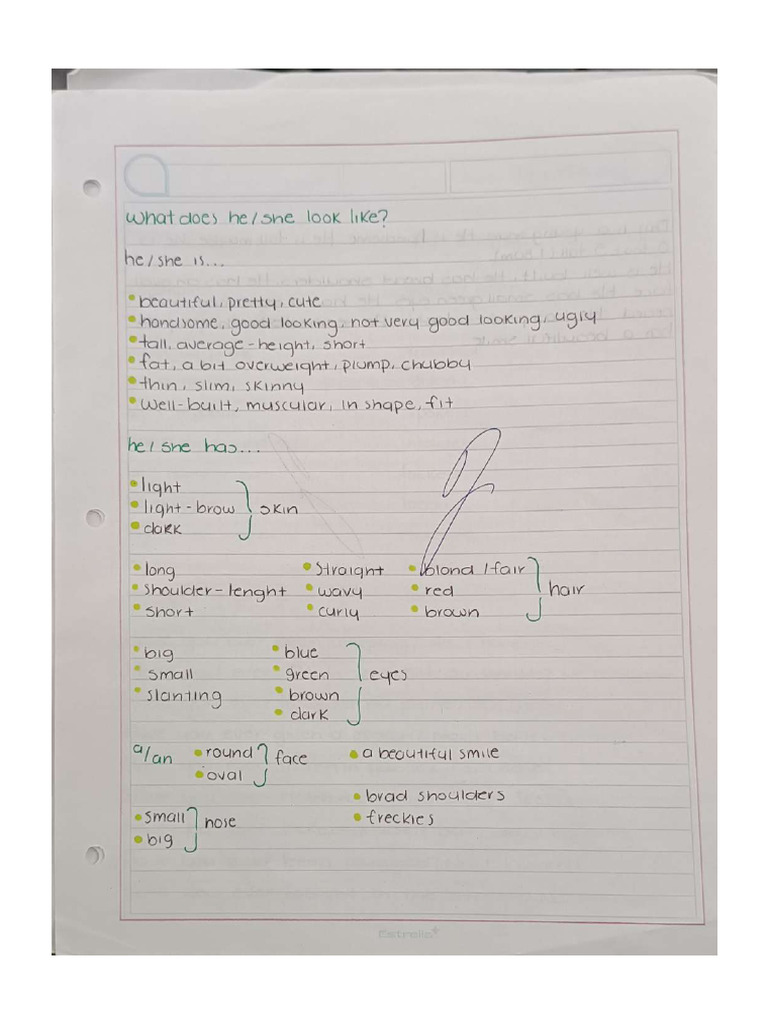 What does he/she look like?
he/she is...
• beautiful, pretty, cute
• handsome, good looking, not very good looking, ugly
• tall, average-height, short
• fat, a bit overweight, plump, chubby
• thin, slim, skinny
• well-built, muscular, in shape, fit
he/she has...
• light
• light-brow } skin
• dark
• long • Straight • blond /fair
• shoulder-lenght • wavy • red } hair
• short • curly • brown
• big • blue
• small • green } eyes
• slanting • brown
• dark
a/an • round } face • a beautiful smile
• oval
• brad shoulders
• small } nose • freckles
• big
Estrella